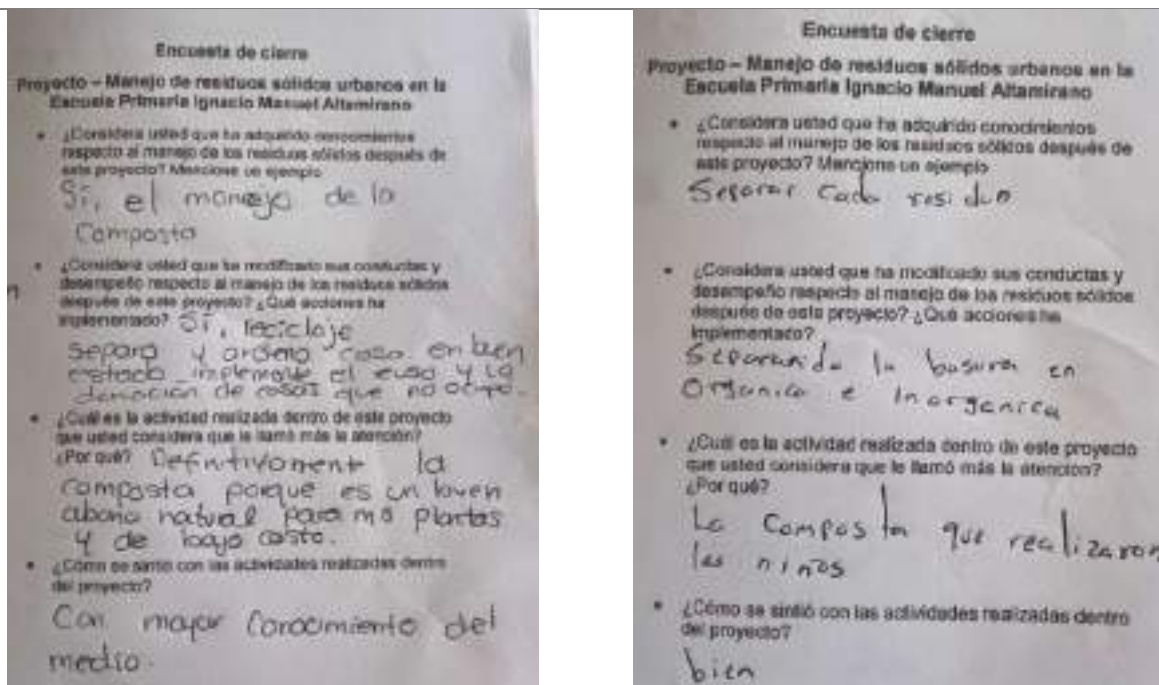 Encuesta de cierre
Proyecto – Manejo de residuos sólidos urbanos en la
Escuela Primaria Ignacio Manuel Altamirano
• ¿Considera usted que ha adquirido conocimientos
respecto al manejo de los residuos sólidos después de
este proyecto? Mencione un ejemplo
Si, el manejo de la
Composta
• ¿Considera usted que ha modificado sus conductas y
desempeño respecto al manejo de los residuos sólidos
después de este proyecto? ¿Qué acciones ha
implementado? Si, reciclaje
separo y ordeno cosa en buen
estado implemente el y la
donación de cosas que no ocupo.
• ¿Cuál es la actividad realizada dentro de este proyecto
que usted considera que le llamó más la atención?
¿Por qué? Definitivament la
composta porque es un buen
abono natural para mis plantas
y de bajo costo.
• ¿Cómo se sintió con las actividades realizadas dentro
del proyecto?
Con mayor Conocimiento del
medio.
Encuesta de cierre
Proyecto – Manejo de residuos sólidos urbanos en la
Escuela Primaria Ignacio Manuel Altamirano
• ¿Considera usted que ha adquirido conocimientos
respecto al manejo de los residuos sólidos después de
este proyecto? Mencione un ejemplo
Separar Cada residuo
• ¿Considera usted que ha modificado sus conductas y
desempeño respecto al manejo de los residuos sólidos
después de este proyecto? ¿Qué acciones ha
implementado?
Separando la basura en
Organica e Inorganica
• ¿Cuál es la actividad realizada dentro de este proyecto
que usted considera que le llamó más la atención?
¿Por qué?
La Composta que realizaron
los niños
• ¿Cómo se sintió con las actividades realizadas dentro
del proyecto?
bien